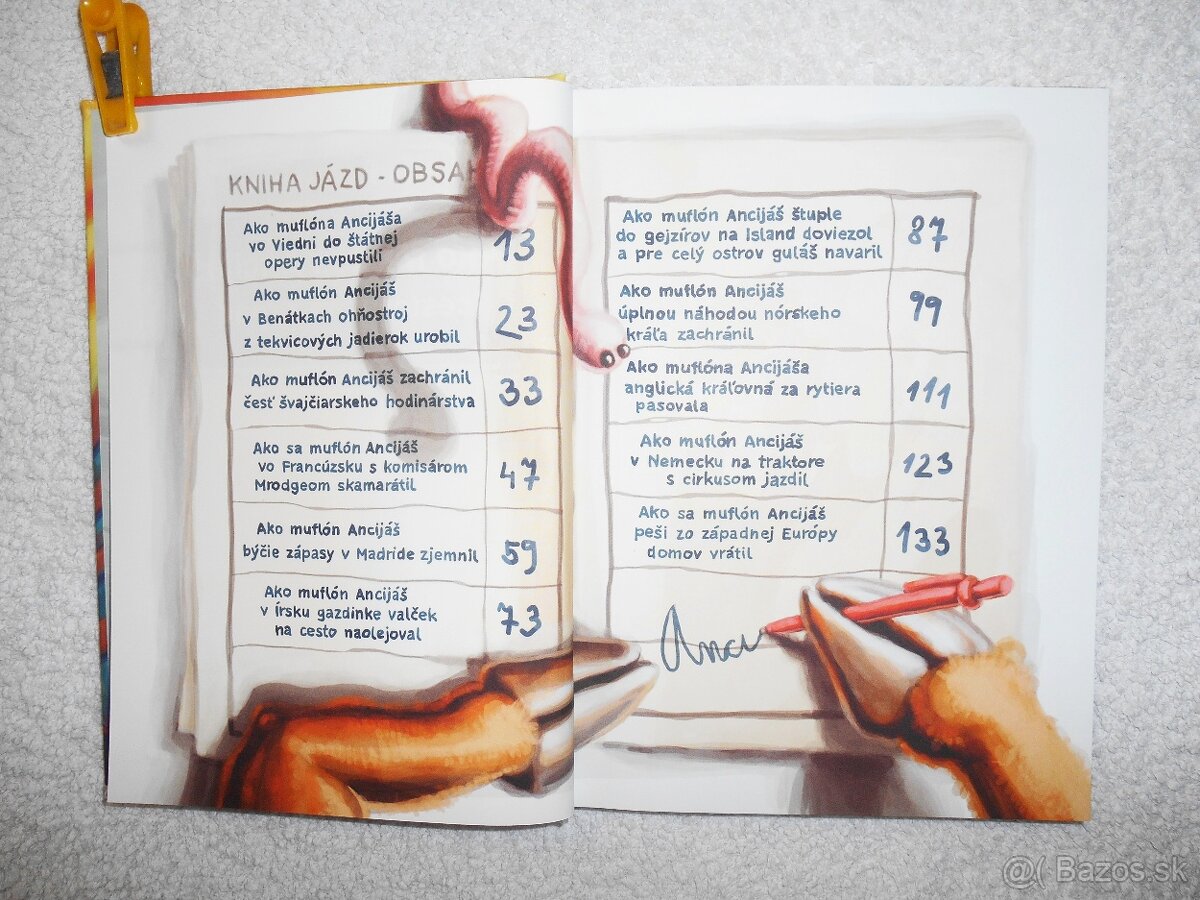 KNIHA JÁZD - OBSAH
Ako muflóna Ancijáša
vo Viedni do štátnej
opery nevpustili
13
Ako muflón Ancijáš
v Benátkach ohňostroj
z tekvicových jadierok urobil
23
Ako muflón Ancijáš zachránil
česť švajčiarskeho hodinárstva
33
Ako sa muflón Ancijáš
vo Francúzsku s komisárom
Mrodgeom skamarátil
47
Ako muflón Ancijáš
býčie zápasy v Madride zjemnil
59
Ako muflón Ancijáš
v Írsku gazdinke valček
na cesto naolejoval
73
Ako muflón Ancijáš štuple
do gejzírov na Island doviezol
a pre celý ostrov guláš navaril
87
Ako muflón Ancijáš
úplnou náhodou nórskeho
kráľa zachránil
99
Ako muflóna Ancijáša
anglická kráľovná za rytiera
pasovala
111
Ako muflón Ancijáš
v Nemecku na traktore
s cirkusom jazdil
123
Ako sa muflón Ancijáš
peši zo západnej Európy
domov vrátil
133
Anci
@( Bazos.sk